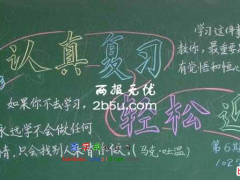 认真复习
轻松迎
学习这件
教你，最重要
有觉悟和恒心
如果你不去学习，
永远学不会做任何
事情，只会找别人来替你做；(马克·吐温)
两报无忧
2b5u.com
第6期